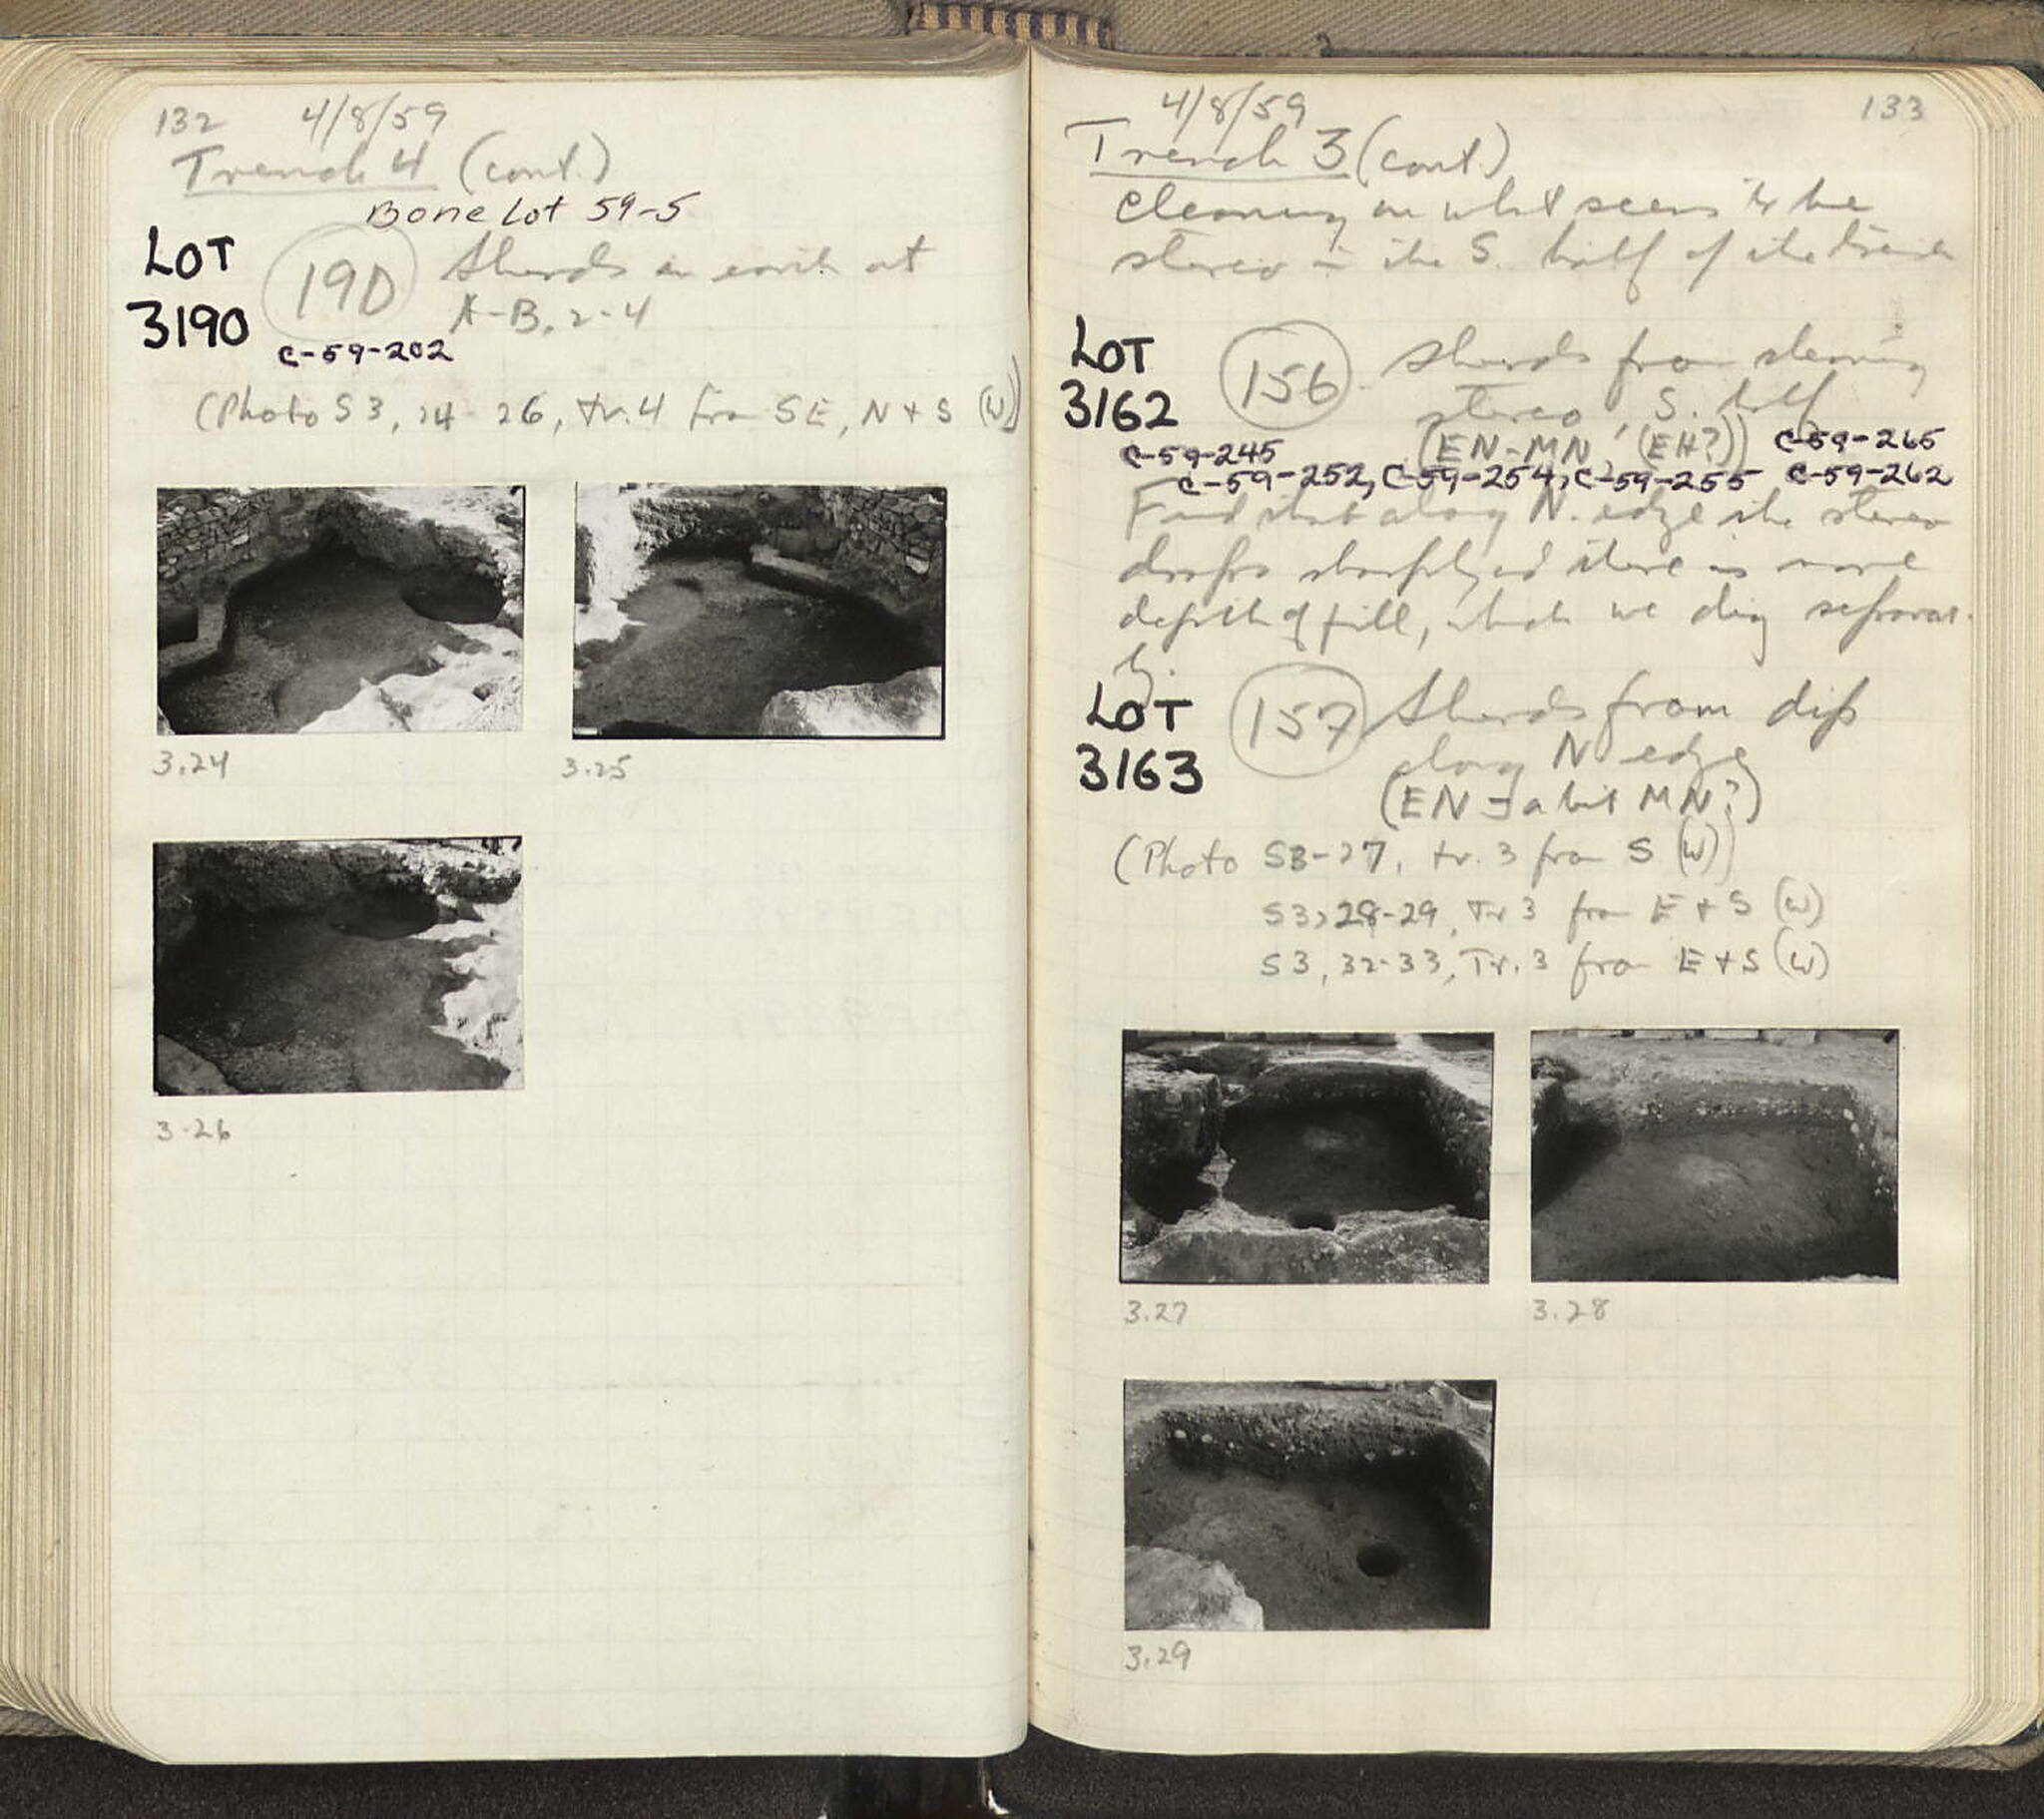 132 4/8/59
Trench 4 (cont.)
Bone Lot 59-5
LOT
3190
190 Sherds in earth at
A-B, 2-4
C-59-202
(Photo S3, 24-26, tr. 4 from SE, N + S (W))
3.24
3.25
3.26
4/8/59 133
Trench 3 (cont.)
cleaning on what seems to be
stereo in the S. half of the trench
LOT
3162
156 Sherds from cleaning
stereo, S. half
(EN-MN, (EH?))
C-59-245
C-59-265
C-59-252, C-59-254, C-59-255 C-59-262
Find that along N. edge the stereo
drops sharply, and there is more
depth of fill, which we dig separat-
ly.
LOT
3163
157 Sherds from dip
along N edge
(EN - a bit MN?)
(Photo S3-27, tr. 3 from S (W))
S3, 28-29, Tr 3 from E + S (W)
S3, 32-33, Tr. 3 from E + S (W)
3.27
3.28
3.29